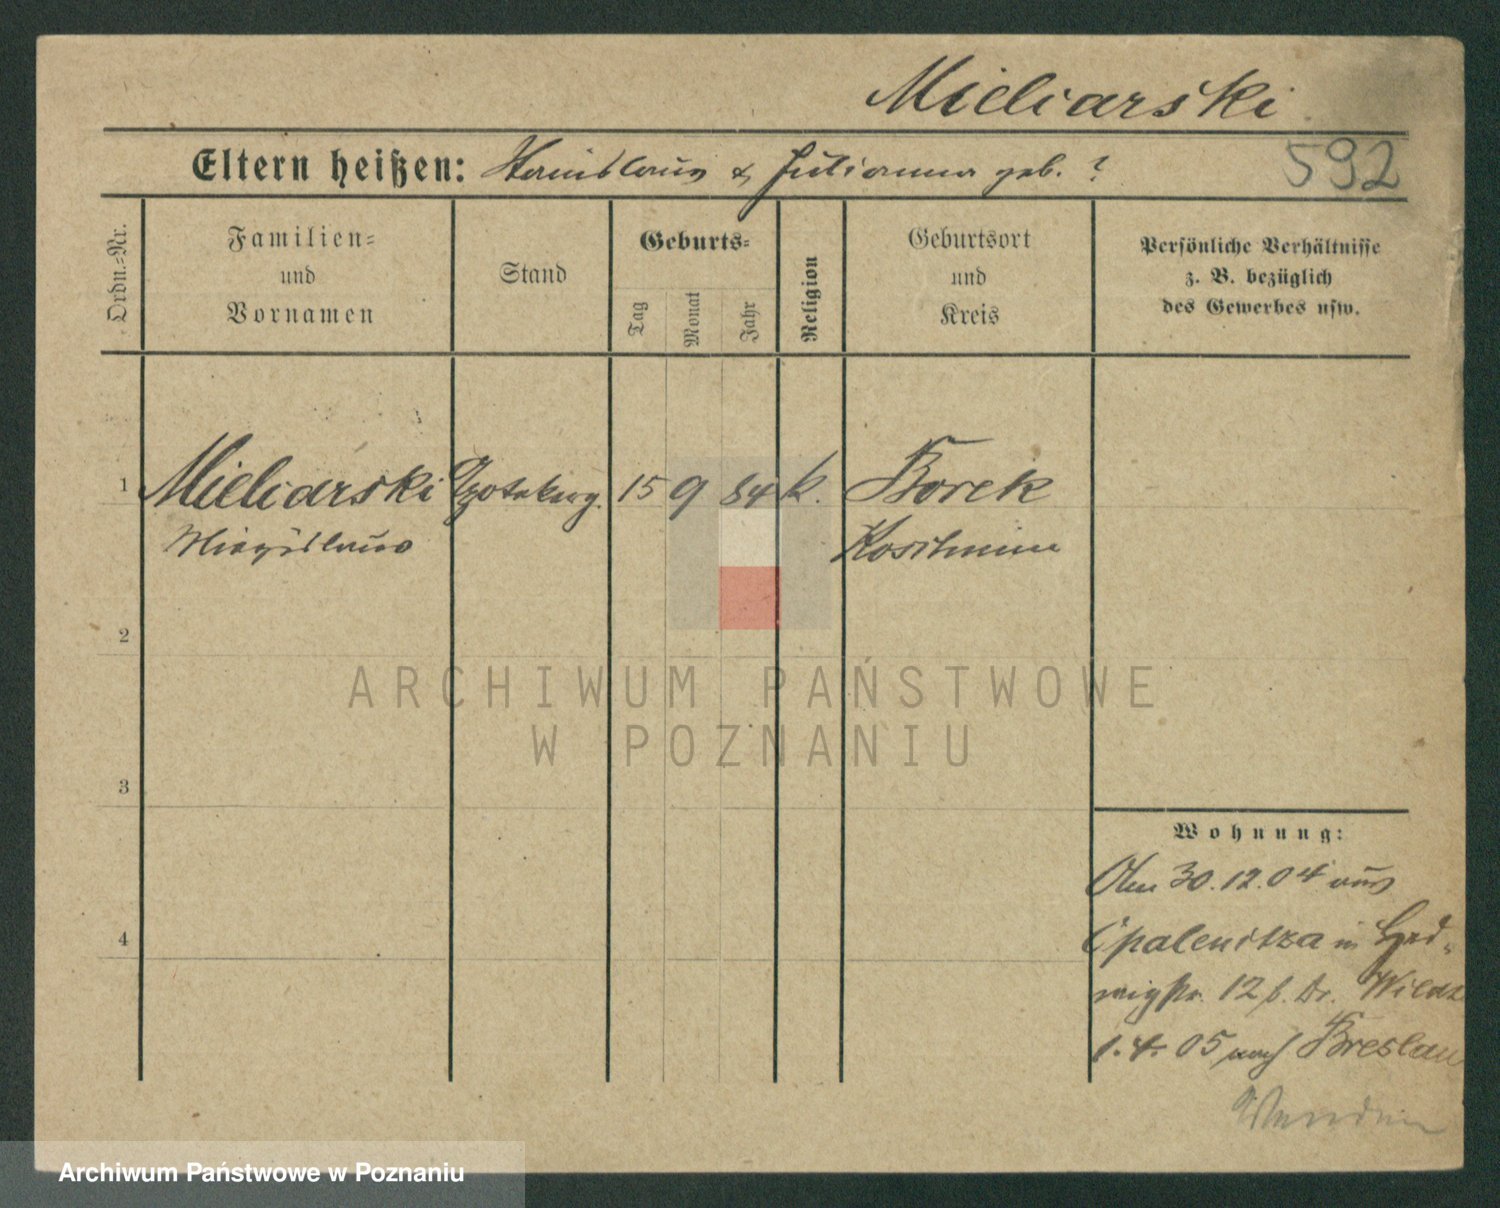 Mieliarski
Eltern heißen: Stanislaus & Julianna geb. ?
592
Ordn.-Nr.
Familien-
und
Vornamen
Stand
Geburts-
Tag
Monat
Jahr
Religion
Geburtsort
und
Kreis
Persönliche Verhältnisse
z. B. bezüglich
des Gewerbes usw.
1 Mieliarski 15 9 84 k. Borek
Koschmin
2
ARCHIWUM PAŃSTWOWE
W POZNANIU
3
Wohnung:
30.12.04 aus
4
Opalenitza in Hed-
wigstr. 12 b. Dr.
1.4.05 nach Breslau
Wenden
Archiwum Państwowe w Poznaniu